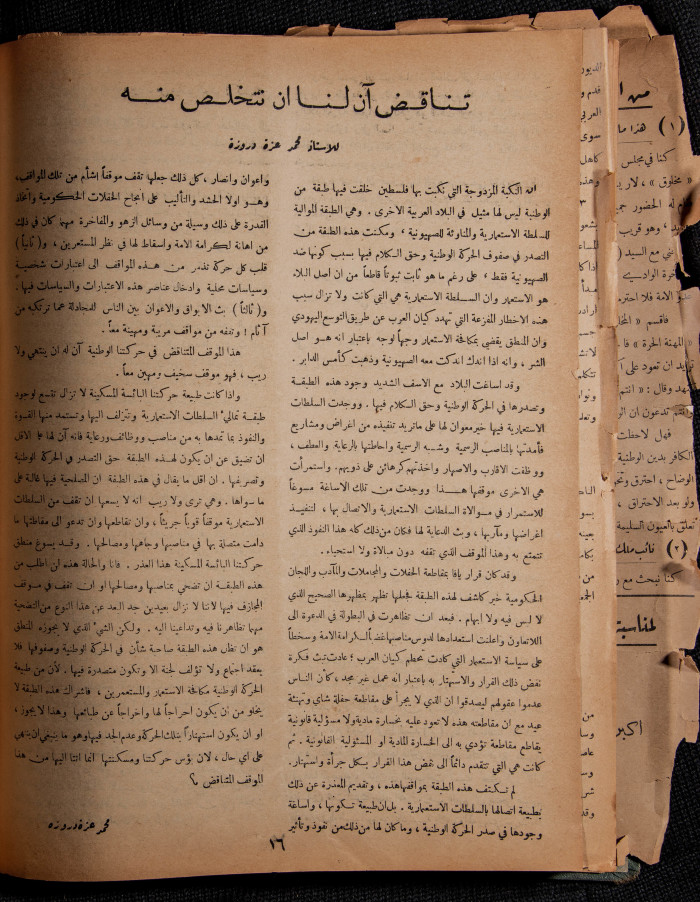 تناقض آن لنا ان نتخلص منه
للاستاذ محمد عزة دروزة
ان النكبة المزدوجة التي نكبت بها فلسطين خلقت فيها طبقة من
الوطنية ليس لها مثيل في البلاد العربية الاخرى . وهي الطبقة الموالية
للسلطة الاستعمارية والمناوئة للصهيونية ، ومكنت هذه الطبقة من
التصدر في صفوف الحركة الوطنية وحق الكلام فيها بسبب كونها ضد
الصهيونية فقط ، على رغم ما هو ثابت ثبوتاً قاطعاً من ان اصل البلاء
هو الاستعمار وان السلطة الاستعمارية هي التي كانت ولا تزال سبب
هذه الاخطار المفزعة التي تهدد كيان العرب عن طريق التوسع اليهودي
وان المنطق يقضي بمكافحة الاستعمار وجهاً لوجه باعتبار انه هو اصل
الشر ، وانه اذا اندك اندكت معه الصهيونية وذهبت كأمس الدابر .
وقد اساغت البلاد مع الاسف الشديد وجود هذه الطبقة
وتصدرها في الحركة الوطنية وحق الكلام فيها . ووجدت السلطات
الاستعمارية فيها خير معوان لها على ماتريد تنفيذه من اغراض ومشاريع
فأمدتها بالمناصب الرسمية وشبه الرسمية واحاطتها بالرعاية والعطف ،
ووظفت الاقارب والاصهار واخذتهم كرهائن على ذويهم . واستمرأت
هي الاخرى موقفها هذا ووجدت من تلك الاساغة مسوغاً
للاستمرار في موالاة السلطات الاستعمارية والاتصال بها ، لتنفيذ
اغراضها ومآربها ، وبث الدعاية لها فكان من ذلك كله هذا النفوذ الذي
تتمتع به وهذا الموقف الذي تقفه دون مبالاة ولا استحياء .
وقد كان قرار يافا بمقاطعة الحفلات والمجاملات والمآدب واللجان
الحكومية خير كاشف لهذه الطبقة بجعلها تظهر بمظهرها الصحيح الذي
لا لبس فيه ولا ابهام . فبعد ان تظاهرت في البطولة في الدعوة الى
اللاتعاون واعلنت استعدادها لدوس مناصبها غضباً لكرامة الامة وسخطاً
على سياسة الاستعمار التي كادت تحطم كيان العرب ؛ عادت تبث فكرة
نقض ذلك القرار والاستهتار به باعتبار انه عمل غير مجد ، كأن الناس
عدموا عقولهم ليصدقوا ان الذي لا يجرأ على مقاطعة حفلة شاي وتهنئة
عيد مع ان مقاطعته هذه لا تعود عليه بخسارة مادية ولا مسؤلية قانونية
يقاطع مقاطعة تؤدي به الى الخسارة المادية او المسئولية القانونية . ثم
كانت هي التي تتقدم دائماً الى نقض هذا القرار بكل جرأة واستهتار .
لم تكتف هذه الطبقة بمواقفها هذه ، وتقديم المعذرة عن ذلك
بطبيعة اتصالها بالسلطات الاستعمارية . بل ان طبيعة تكونها ، واساغة
وجودها في صدر الحركة الوطنية ، وما كان لها من ذلك من نفوذ وتأثير
واعوان وانصار ، كل ذلك جعلها تقف موقفاً اشأم من تلك المواقف ،
وهو اولا الحشد والتأليب على انجاح الحفلات الحكومية واتخاذ
القدرة على ذلك وسيلة من وسائل الزهو والمفاخرة مهما كان في ذلك
من اهانة لكرامة الامة واسقاط لها في نظر المستعمرين ، و(ثانياً)
قلب كل حركة تذمر من هذه المواقف الى اعتبارات شخصية
وسياسات محلية وادخال عناصر هذه الاعتبارات والسياسات فيها .
و(ثالثاً) بث الابواق والاعوان بين الناس للمجادلة عما ترتكبه من
آثام ! وتقفه من مواقف مريبة ومهينة معاً .
هذا الموقف المتناقض في حركتنا الوطنية آن له ان ينتهي ولا
ريب ، فهو موقف سخيف ومهين معاً .
واذا كانت طبيعة حركتنا البائسة المسكينة لا تزال تتسع لوجود
طبقة تمالئ السلطات الاستعمارية وتتزلف اليها وتستمد منها القوة
والنفوذ بما تمدها به من مناصب ووظائف ورعاية فانه آن لها على الاقل
ان تضيق عن ان يكون لهذه الطبقة حق التصدر في الحركة الوطنية
وتصريفها . ان اقل ما يقال في هذه الطبقة ان المصلحية فيها غالبة على
ما سواها . وهي ترى ولا ريب انه لا يسعها ان تقف من السلطات
الاستعمارية موقفاً قوياً جريئاً ، وان نقاطعها وان تدعو الى مقاطعتها ما
دامت متصلة بها في مناصبها وجاهها ومصالحها . وقد يسوغ منطق
حركتنا البائسة المسكينة هذا العذر . فانا والحالة هذه لن اطلب من
هذه الطبقة ان تضحي بمناصبها ومصالحها او ان تقف في موقف
المجازف فيها لاننا لا نزال بعيدين جد البعد عن هذا النوع من التضحية
مهما تظاهرنا فيه وتداعينا اليه . ولكن الشيء الذي لا يجوزه المنطق
هو ان تظل هذه الطبقة صاحبة شأن في الحركة الوطنية وصفوفها فلا
يعقد اجتماع ولا تؤلف لجنة الا وتكون متصدرة فيها . لأن من طبيعة
الحركة الوطنية مكافحة الاستعمار والمستعمرين ، فاشراك هذه الطبقة لا
يخلو من ان يكون احراجاً لها واخراجاً عن طبائعها وهذا لا يجوز ،
او ان يكون استهتاراً بتلك الحركة وعدم الجد فيها وهو ما ينبغي ان ينتهي
على اي حال ، لان بؤس حركتنا ومسكنتها انما اتتا اليها من هذا
الموقف المتناقض ؟
محمد عزة دروزه
١٦
الديور
قدم و
العربي
سوى
كاهل
وهذه
من ا
(١) هذا ما
كنا في مجلس
« مخلوق » ، لار يد
له الحضور جميـ
، وهو قريب
ني مع السيد (
و الامة فلا احترـ
فاقسم « المخا
« المهنة الحرة » فا
يد ان تعود على ا
وقال : « انتم
تدعون ان الر
فهل لاحظت
الكافر بدين الوطنية
الوضاح ، احترق وتحو
ولو بعد الاحتراق ،
تعلق بالعيون السليمة
(٢) نائب ملك
كنا نبحث مع ر
لمناسبة
اكبر